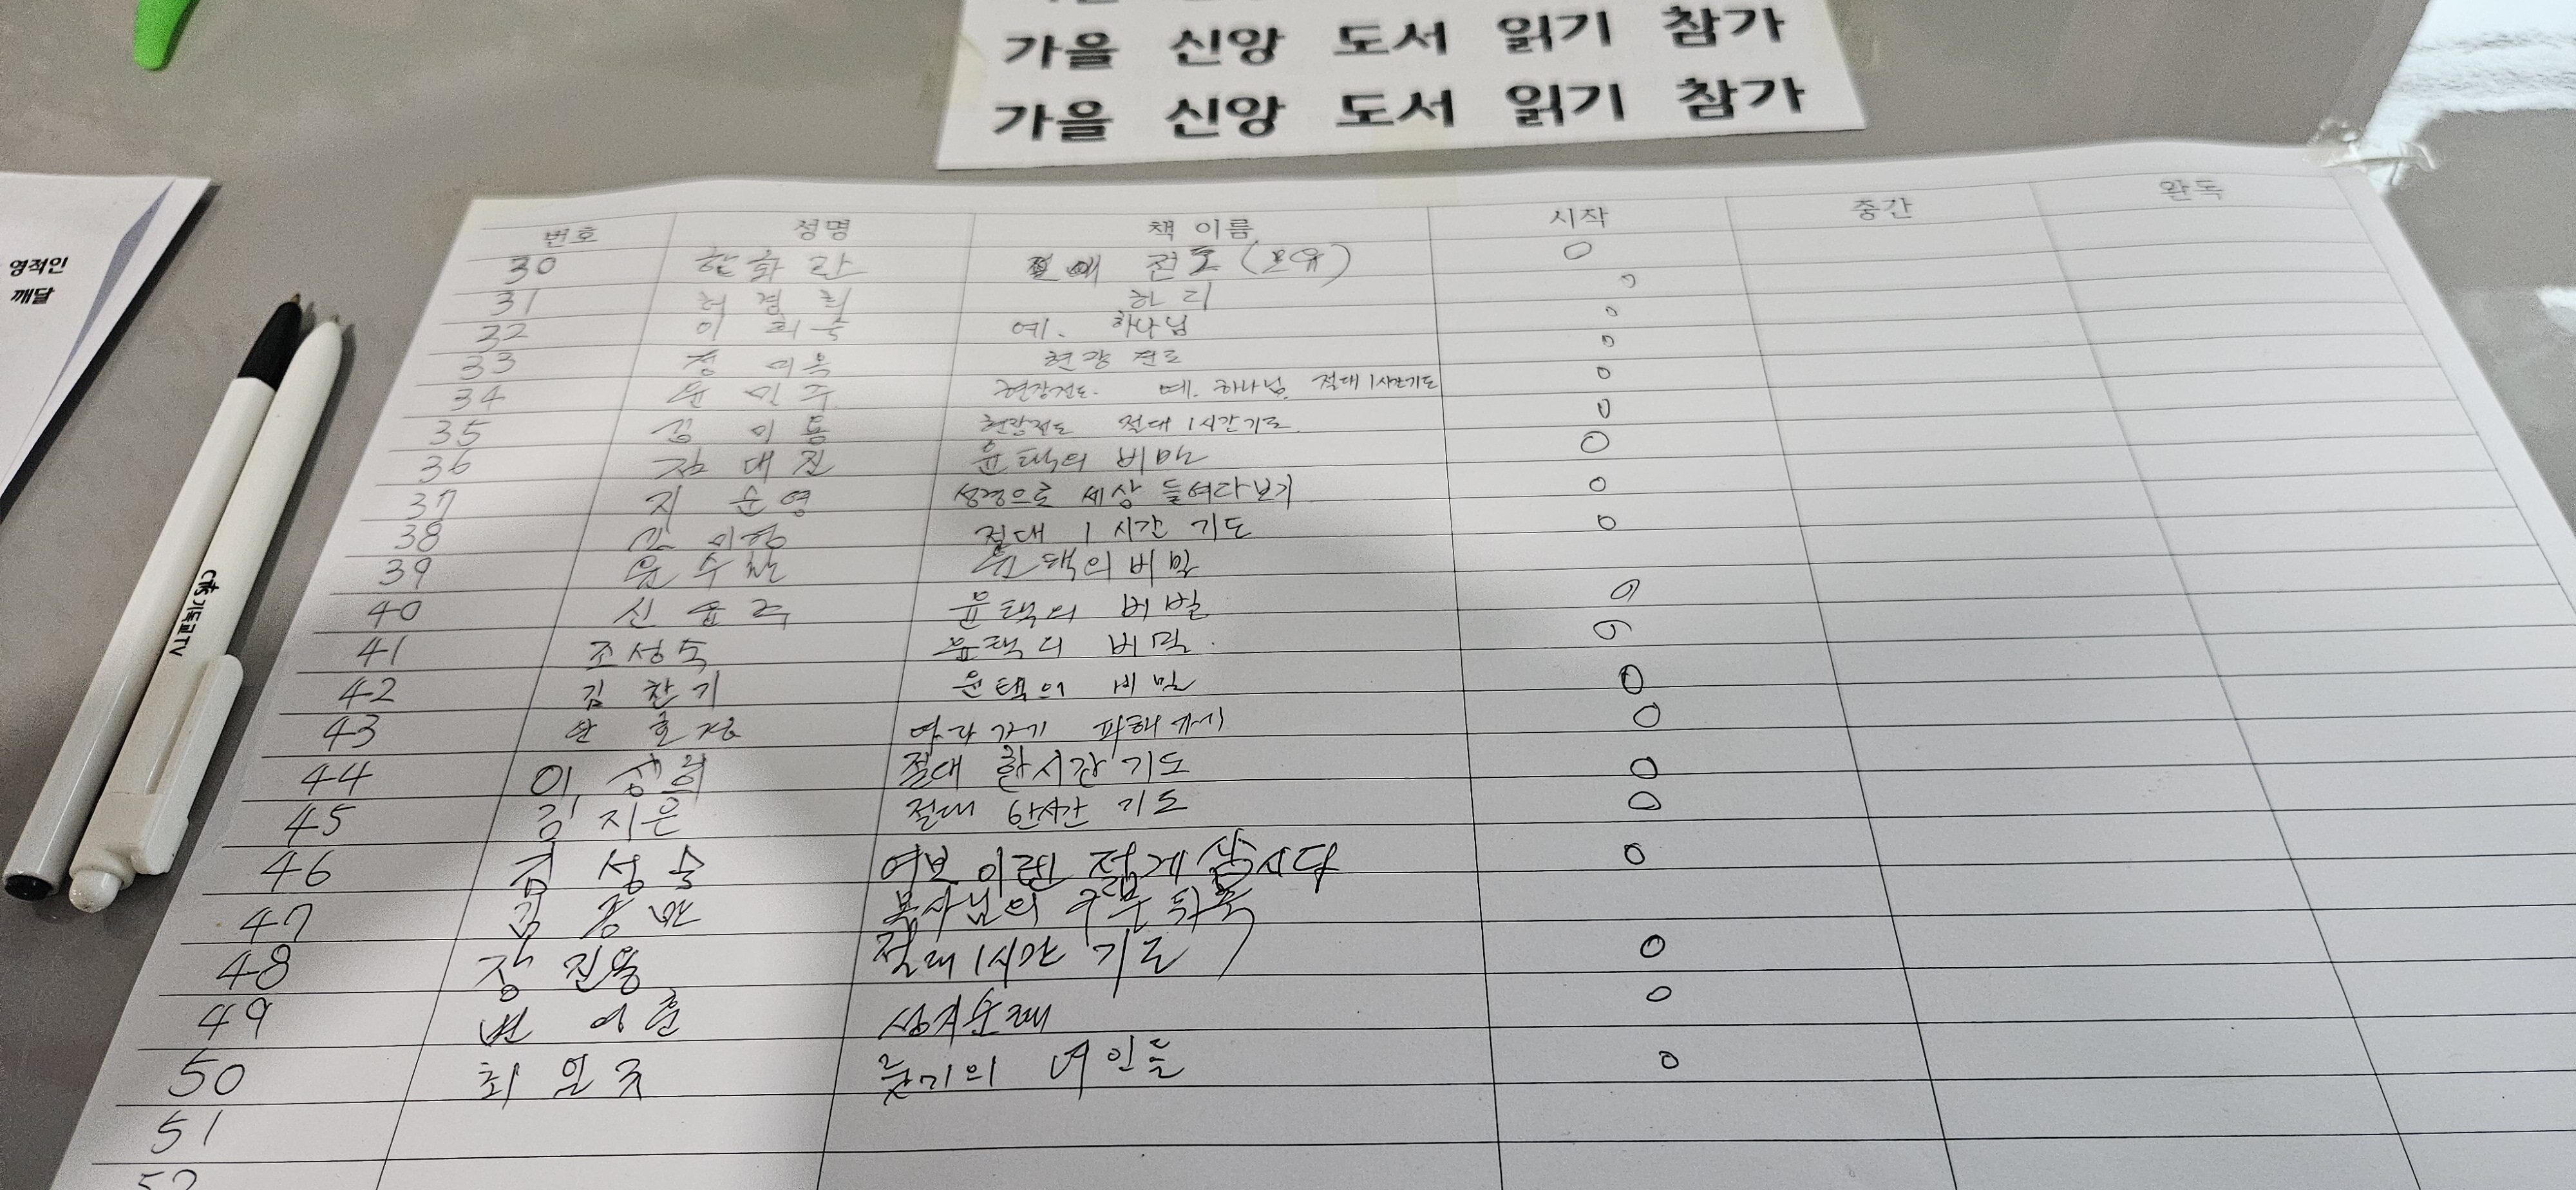 가을 신앙 도서 읽기 참가
가을 신앙 도서 읽기 참가
영적인
깨달
cts 기독교TV
번호 성명 책 이름 시작 중간 완독
30 한화란 전도 (보유) O
31 허 하리 O
32 이희숙 예. 하나님 O
33 정미옥 현장전도 O
34 윤민주 현장전도. 예. 하나님. 절대 1시간기도 O
35 김미동 현장전도 절대 1시간기도. O
36 대진 윤택의 비밀 O
37 지순영 성경으로 세상 들여다보기 O
38 김미정 절대 1시간 기도 O
39 윤수 윤택의 비밀
40 신윤주 윤택의 비밀 O
41 조성숙 윤택의 비밀. O
42 김찬기 윤택의 비밀 O
43 안효정 O
44 이성희 절대 한시간 기도 O
45 김지은 절대 한시간 기도 O
46 김성숙 여보 이젠 젊게 삽시다 O
47 김종만
48 장진용 절대 1시간 기도 O
49 변 성지순례 O
50 최은주 여인들 O
51
52